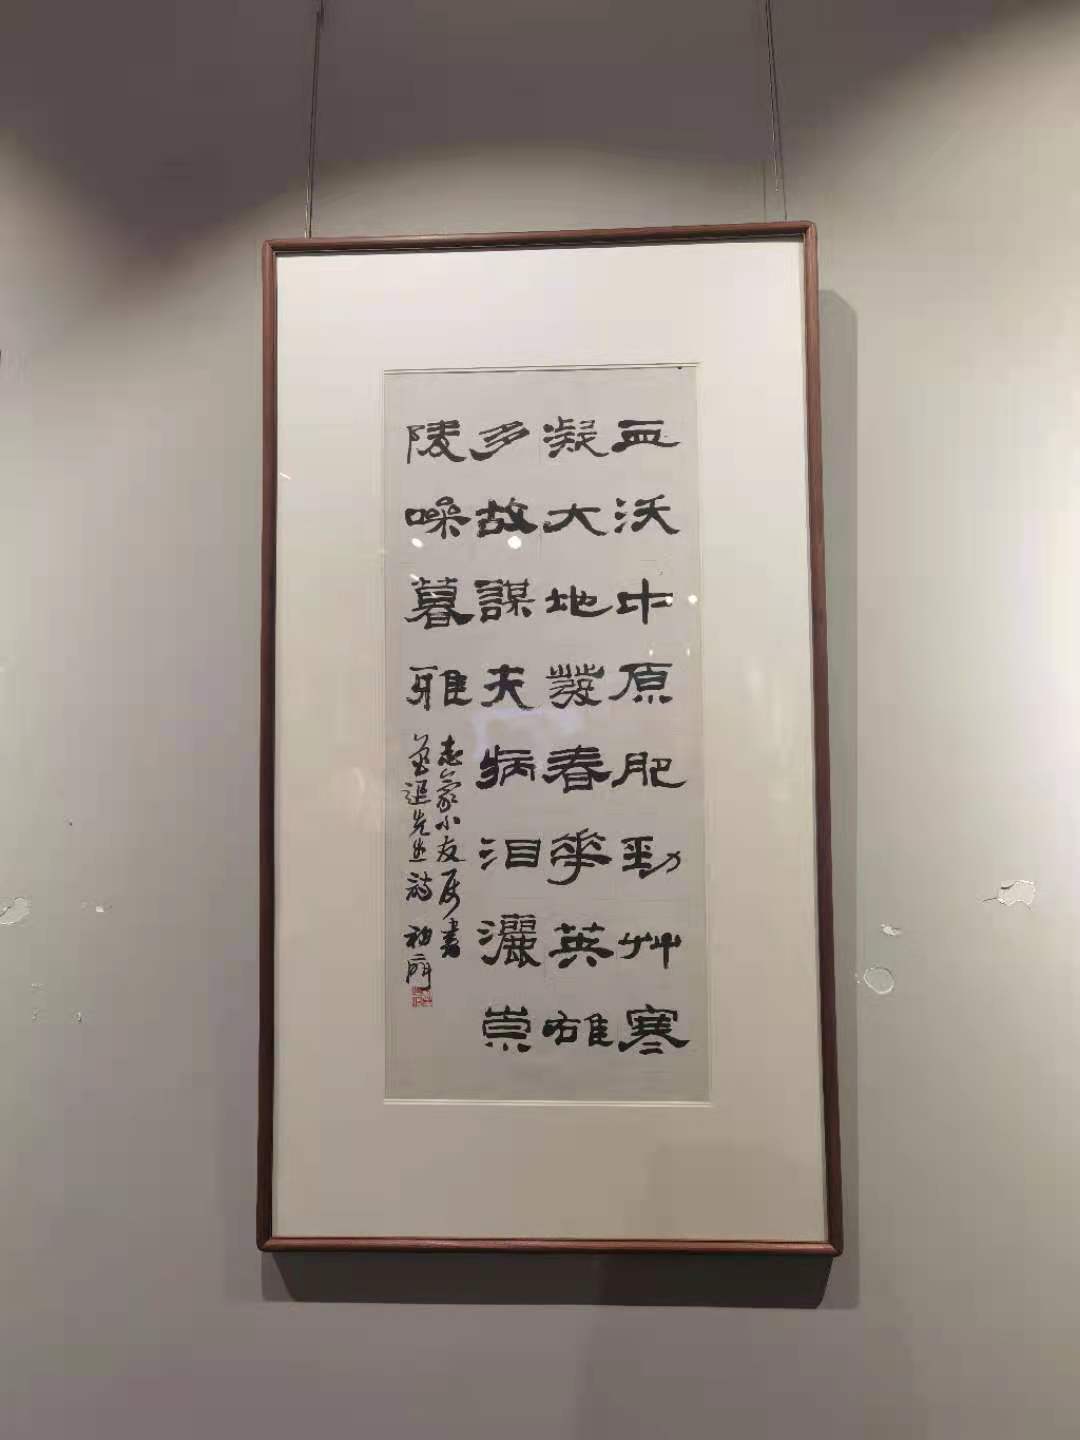 血沃中原肥勁艸寒
凝大地發春華英雄
多故謀夫病泪灑崇
陵噪暮雅
志蒙小友属書
魯迅先生詩 初齋